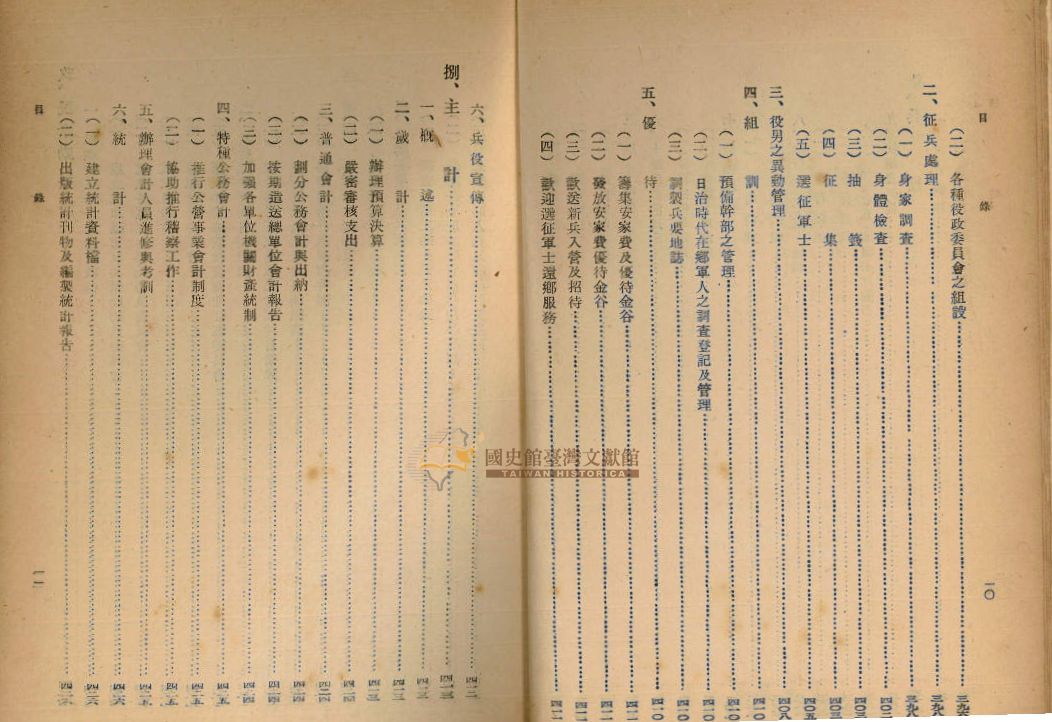 目錄
(二) 各種役政委員會之組設……三九七
二、征兵處理……三九八
(一) 身家調查……三九八
(二) 身體檢查……四〇二
(三) 抽籤……四〇三
(四) 征集……四〇三
(五) 選征軍士……四〇五
三、役男之異動管理……四〇八
四、組訓……四一〇
(一) 預備幹部之管理……四一〇
(二) 日治時代在鄉軍人之調查登記及管理
(三) 調製兵要地誌
五、優待……四一〇
(一) 籌集安家費及優待金谷……四一一
(二) 發放安家費優待金谷……四一一
(三) 歡送新兵入營及招待……四一一
(四) 歡迎選征軍士還鄉服務……四一二
一〇
六、兵役宣傳……四一二
捌、主計……四一三
一、概述……四一三
二、歲計……四一三
(一) 辦理預算決算……四一三
(二) 嚴密審核支出
三、普通會計……四二四
(一) 劃分公務會計與出納
(二) 按期造送總單位會計報告
(三) 加強各單位機關財產統制
四、特種公務會計
(一) 推行公營事業會計制度
(二) 協助推行稽察工作
五、辦理會計人員進修與考訓
六、統計……四二六
(一) 建立統計資料檔……四二六
(二) 出版統計刊物及編製統計報告
目錄
一一
國史館臺灣文獻館
TAIWAN HISTORICA